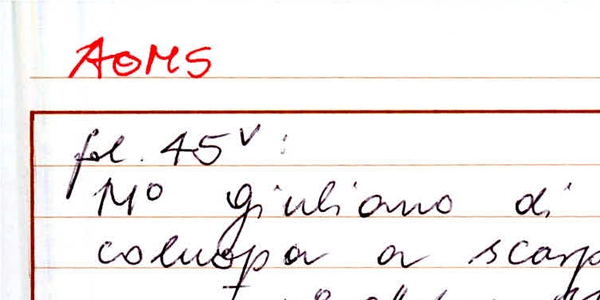 AOMS
fol. 45v:
Mo giuliano di
a scarp